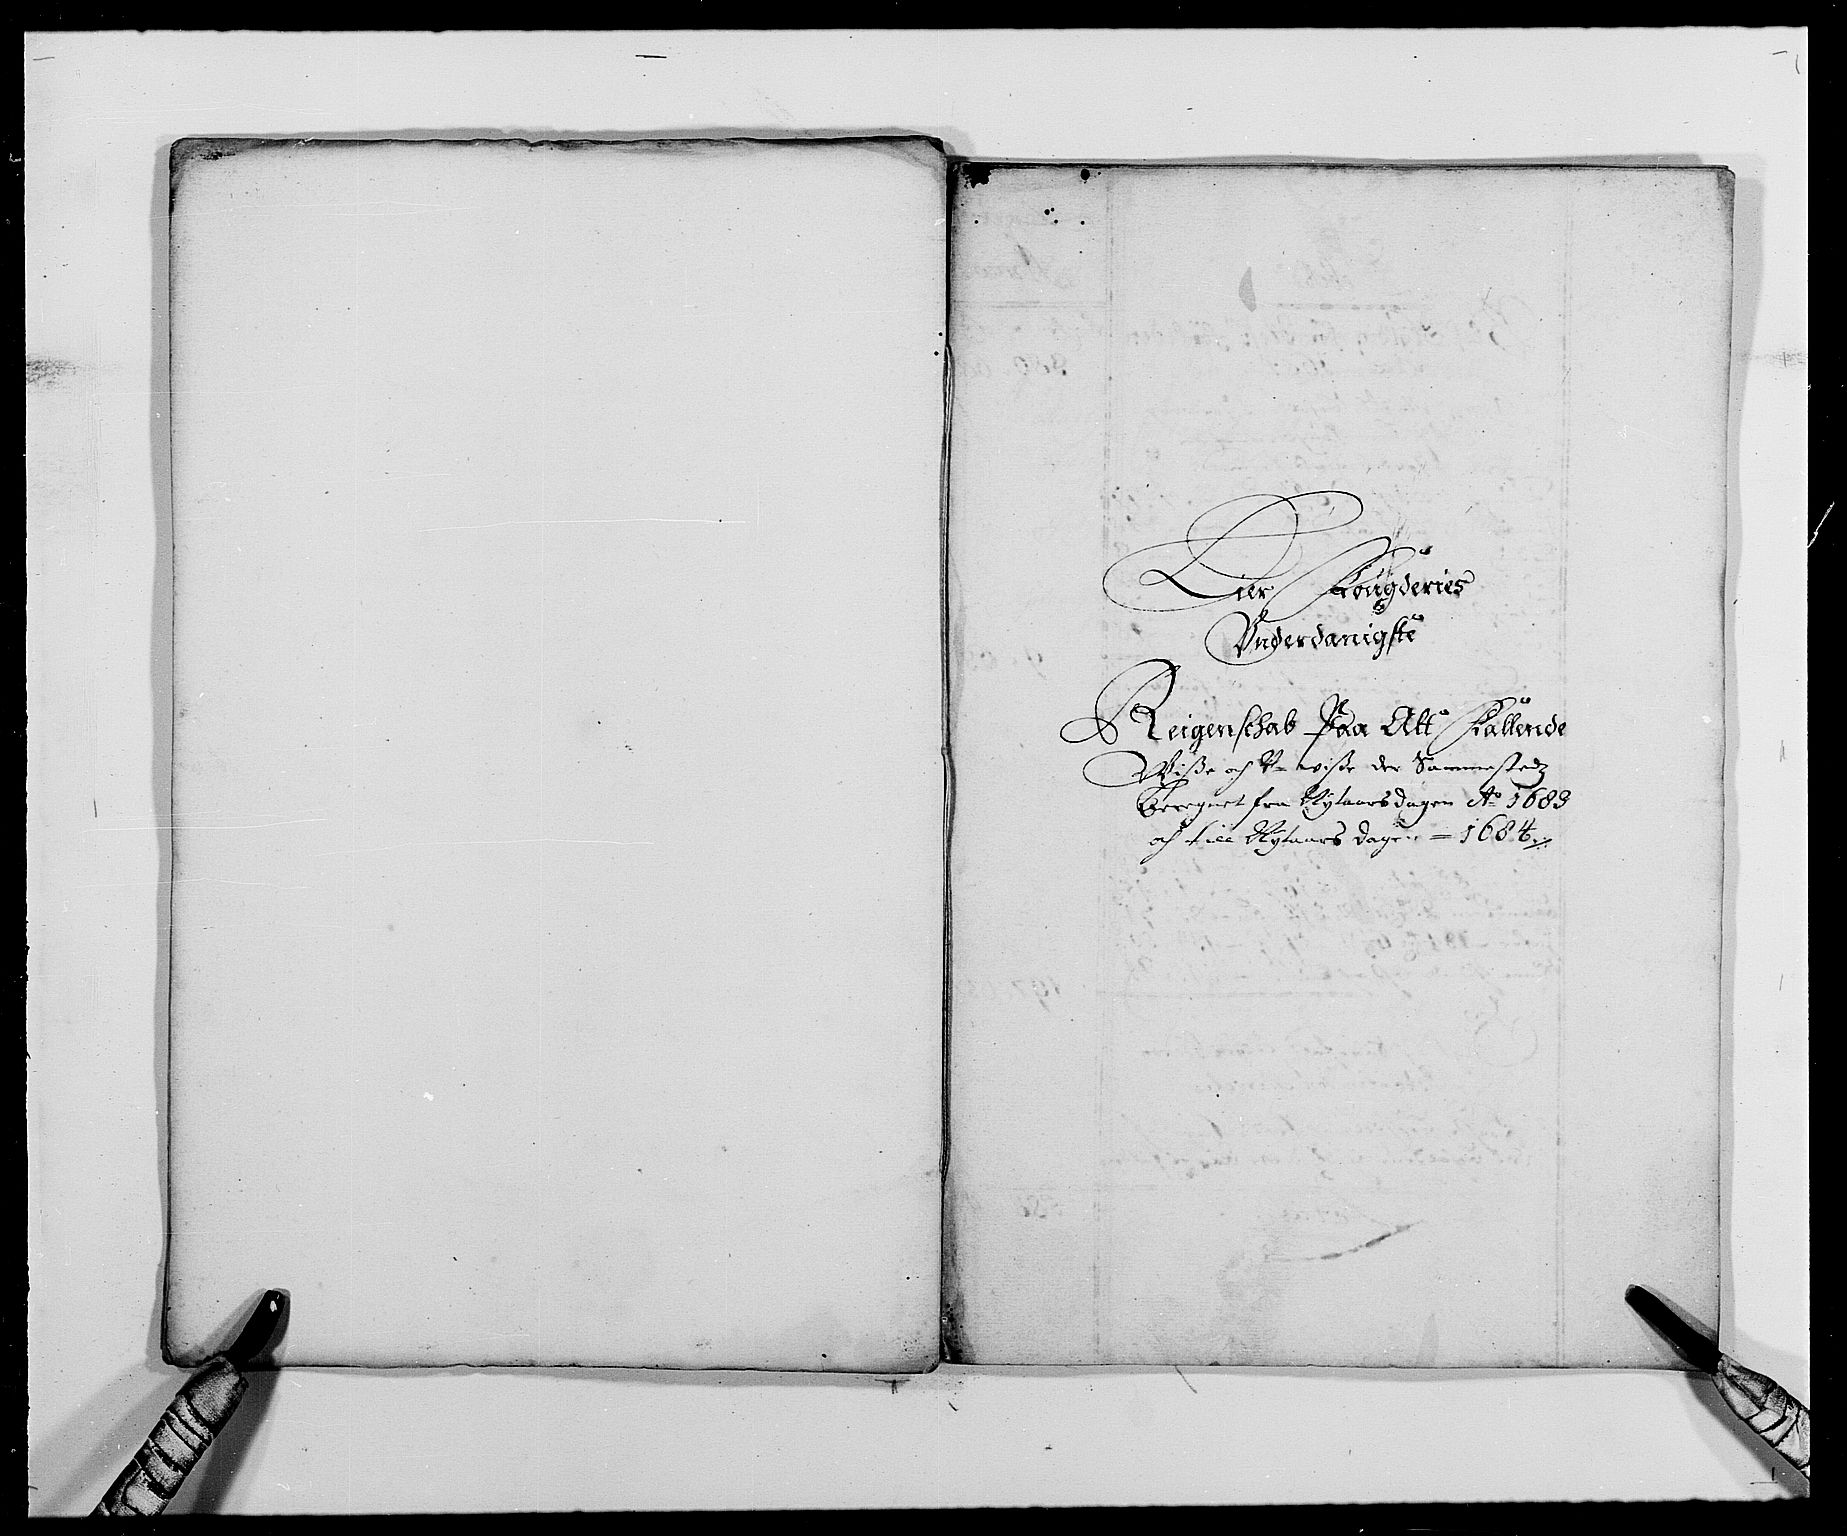 Lier Fougderies
Vnderdanigste
Reigenschab Paa Alt Fallende
Wiße och V-wiße der Sammestedz
Beregnet fra Nytaarsdagen Ao 1683
och till Nytaars dagen - 1684